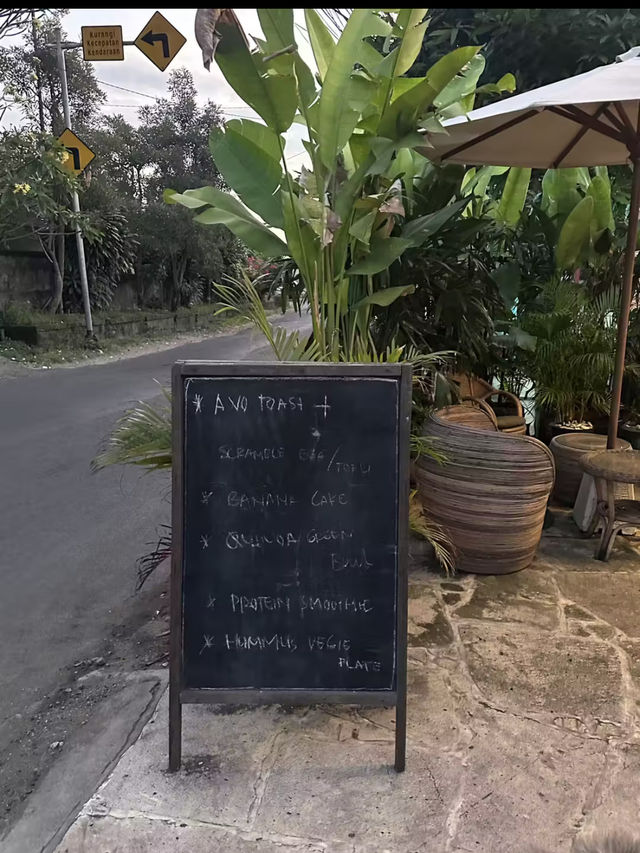 Kurangi
Kecepatan
Kendaraan
* AVO TOAST +
SCRAMBLE EGG / TOFU
* BANANA CAKE
* QUINOA GREEN
Bowl
* PROTEIN SMOOTHIE
* HUMMUS VEGIE
PLATE